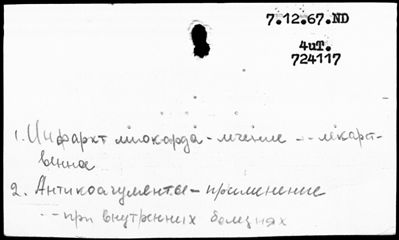 7.12.67.ND
4иТ.
724117
1. Инфаркт миокарда - лечение -- лекарст-
венное
2. Антикоагулянты - применение
-- при внутренних болезнях